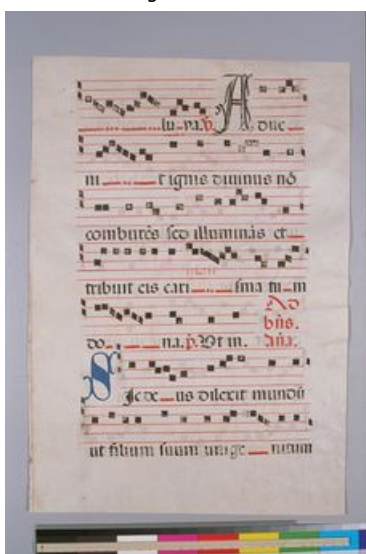 lu-ya. ℣. Adue
ni t ignis diuinus nō
comburēs sed illuminās et
tribuit eis cari sma tu-m
do na. ℣. Ut in. Ad bn̄s. aña.
Sic de-us dilexit mundū
ut filium suum unige-nitum